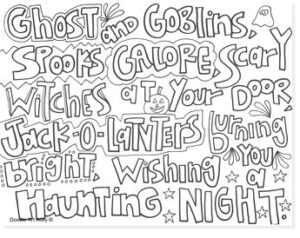 Ghost and Goblins,
Spooks Galore, Scary
Witches at Your Door,
Jack-O-Lanterns burning
bright, Wishing You a
Haunting Night.
Doodle Art Alley ©